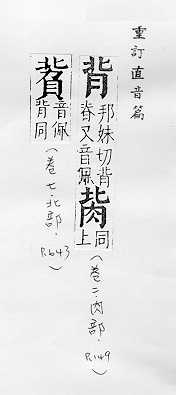 重訂直音篇
背 邦妹切背
脊又音佩
同
上
(卷二·肉部·P.149)
音佩
背同
(卷七·北部·P.643)